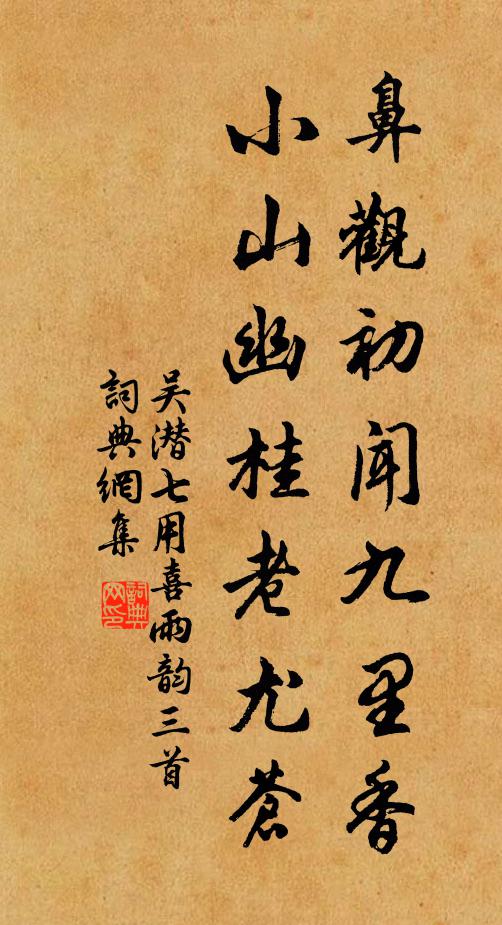 鼻觀初聞九里香
小山幽桂老尤蒼
吴潜七用喜雨韵三首
詞典網集
詞典网印